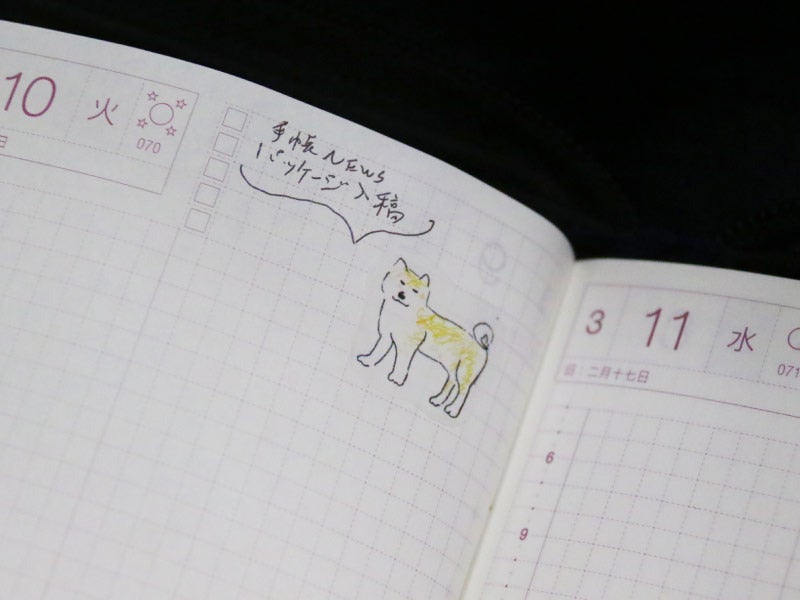 10 火
070
日
手帳NEWS
パッケージ入稿
3 11 水
071
二月十七日
6
9